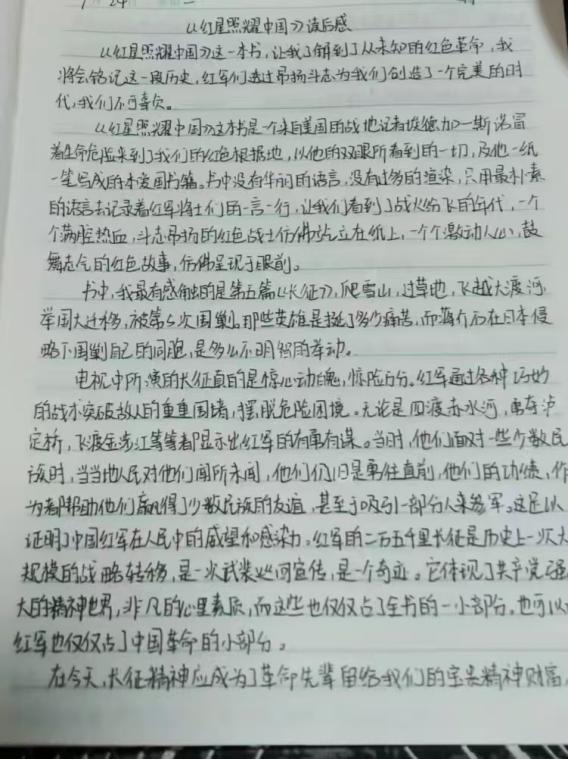 月24日
《红星照耀中国》读后感
《红星照耀中国》这一本书,让我了解到了从未知的红色革命,我
将会铭记这一段历史,红军们透过昂扬斗志为我们创造了一个完美的时
代,我们不可辜负。
《红星照耀中国》这本书是一个来自美国的战地记者埃德加一斯诺冒
着生命危险来到了我们的红色根据地,以他的双眼所看到的一切,及他一纸
一笔写成的本爱国书籍。书中没有华丽的语言,没有过多的渲染,只用最朴素
的语言去记录着红军将士们的一言一行,让我们看到了战火纷飞的年代,一个
个满腔热血,斗志昂扬的红色战士仿佛屹立在纸上,一个个激动人心,鼓
舞志气的红色故事,仿佛呈现于眼前。
书中,我最有感触的是第五篇《长征》,爬雪山,过草地,飞越大渡河
举国大迁移,被第5次围剿。那些英雄是挺了多少痛苦,而蒋介石在日本侵
略下围剿自己的同胞,是多么不明智的举动。
电视中所演的长征真的是惊心动魄,惊险万分。红军通过各种巧妙
的战术突破敌人的重重围堵,摆脱危险困境。无论是四渡赤水河,勇夺泸
定桥,飞渡金沙江等等都显示出红军的有勇有谋。当时,他们面对一些少数民
族时,当当地人民对他们闻所未闻,他们仍旧是勇往直前,他们的功绩,作
为都帮助他们赢得了少数民族的友谊,甚至于吸引一部分人来参军。这足以
证明了中国红军在人民中的威望和感染力。红军的二万五千里长征是历史上一次大
规模的战略转移,是一次武装巡回宣传,是一个奇迹。它体现了共产党强
大的精神世界,非凡的心里素质,而这些也仅仅占了全书的一小部分。也可以
红军也仅仅占了中国革命的小部分。
在今天,长征精神应成为了革命先辈留给我们的宝贵精神财富,